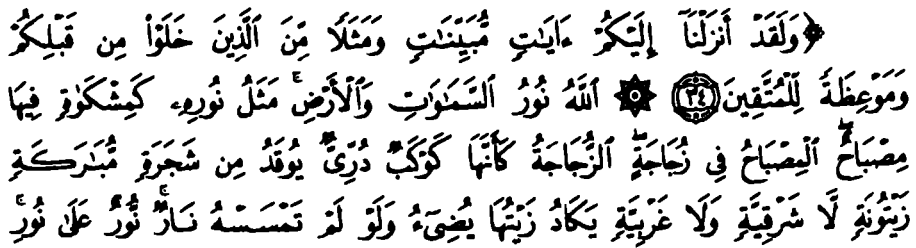 ﴿وَلَقَدْ أَنزَلْنَآ إِلَيْكُمْ ءَايَٰتٍ مُّبَيِّنَٰتٍ وَمَثَلًا مِّنَ ٱلَّذِينَ خَلَوْا۟ مِن قَبْلِكُمْ
وَمَوْعِظَةً لِّلْمُتَّقِينَ ٣٤ ۞ ٱللَّهُ نُورُ ٱلسَّمَٰوَٰتِ وَٱلْأَرْضِ ۚ مَثَلُ نُورِهِۦ كَمِشْكَوٰةٍ فِيهَا
مِصْبَاحٌ ۖ ٱلْمِصْبَاحُ فِى زُجَاجَةٍ ۖ ٱلزُّجَاجَةُ كَأَنَّهَا كَوْكَبٌ دُرِّىٌّ يُوقَدُ مِن شَجَرَةٍ مُّبَٰرَكَةٍ
زَيْتُونَةٍ لَّا شَرْقِيَّةٍ وَلَا غَرْبِيَّةٍ يَكَادُ زَيْتُهَا يُضِىٓءُ وَلَوْ لَمْ تَمْسَسْهُ نَارٌ ۚ نُّورٌ عَلَىٰ نُورٍ ۗ